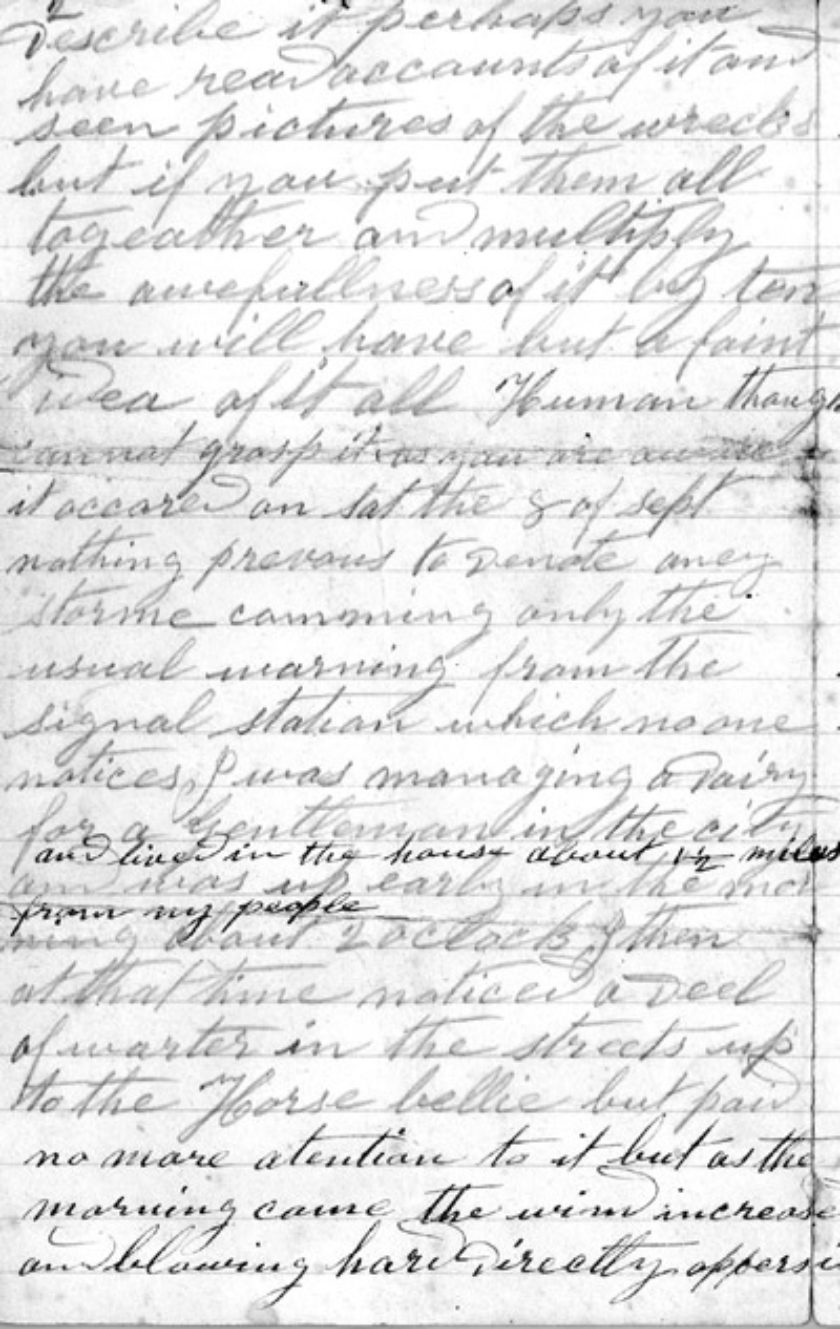 Describe it perhaps you
have read accounts of it and
seen pictures of the wrecks
but if you put them all
togeather and multiply
the awefullness of it by ten
you will have but a faint
idea of it all Human though
cannat grasp it as you are aware
it accared on Sat the 8 of Sept
nothing prevous to denote aney
storme comming only the
usual warning from the
signal station which no one
notices, I was managing a dairy
for a Gentleman in the city
and lived in the house about 1½ miles
and was up early in the mor
from my people
ning about 2 oclock I then
at that time noticed a deel
of warter in the streets up
to the Horse bellie but paid
no more atention to it but as the
morning came the wind increase
and blowing hard directly appersi